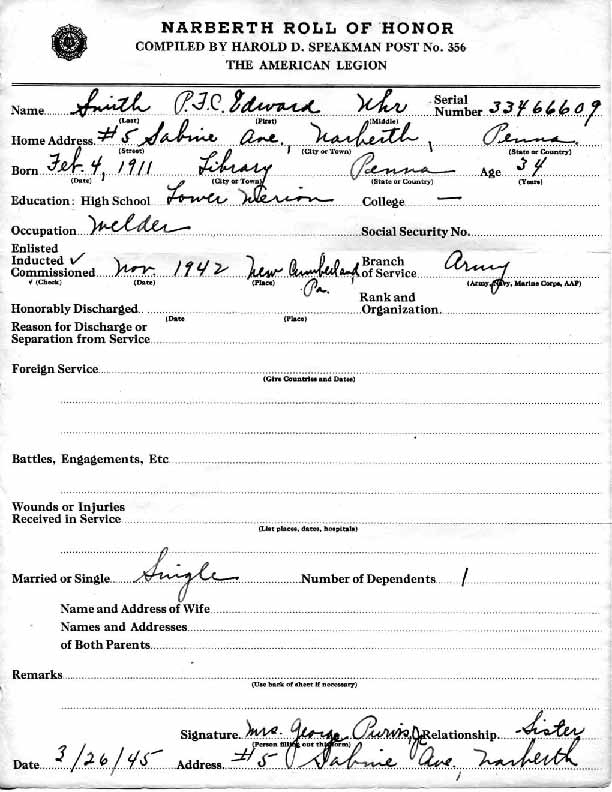 NARBERTH ROLL OF HONOR
COMPILED BY HAROLD D. SPEAKMAN POST No. 356
THE AMERICAN LEGION
Name Smith P.F.C. Edward Uhr Serial Number 33466609
(Last) (First) (Middle)
Home Address #5 Sabine Ave, Narberth, Penna.
(Street) (City or Town) (State or Country)
Born Feb. 4, 1911 Library Penna Age 34
(Date) (City or Town) (State or Country) (Years)
Education: High School Lower Merion College —
Occupation Welder Social Security No.
Enlisted
Inducted ✓ Branch
Commissioned Nov. 1942 New Cumberland Pa. of Service Army
✓ (Check) (Date) (Place) (Army, Navy, Marine Corps, AAF)
Honorably Discharged Rank and Organization
(Date (Place)
Reason for Discharge or
Separation from Service
Foreign Service
(Give Countries and Dates)
Battles, Engagements, Etc
Wounds or Injuries
Received in Service
(List places, dates, hospitals)
Married or Single Single Number of Dependents 1
Name and Address of Wife
Names and Addresses
of Both Parents
Remarks
(Use back of sheet if necessary)
Signature Mrs. George Purvis Jr Relationship Sister
(Person filling out this form)
Date 3/26/45 Address #5 Sabine Ave, Narberth